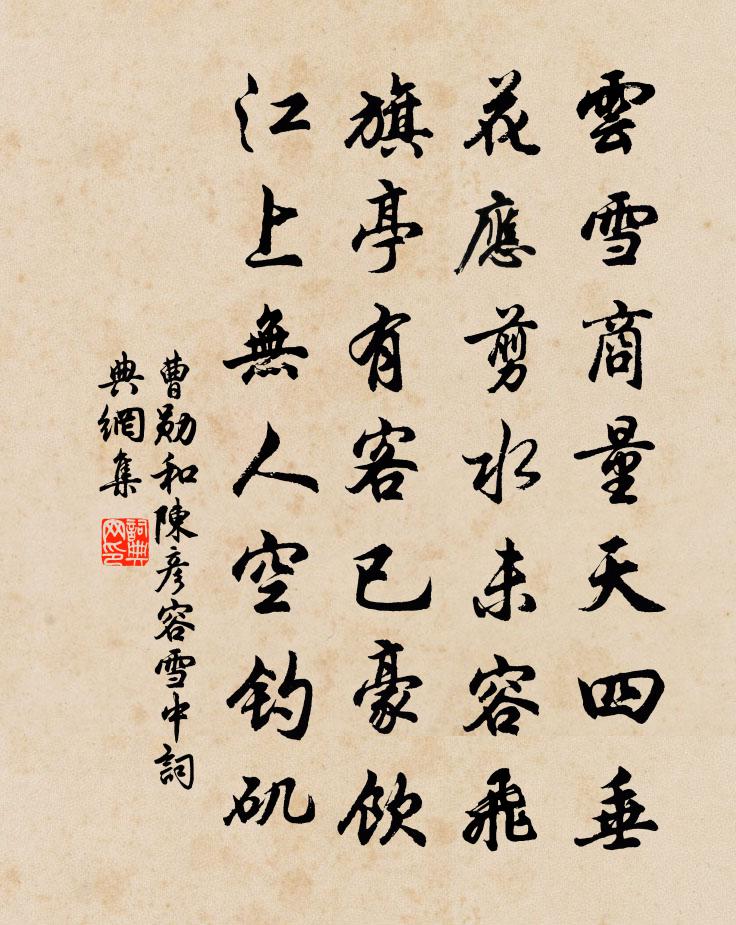 雲雪商量天四垂
花應剪水未容飛
旗亭有客已豪飲
江上無人空釣矶
曹勛和陳彥容雪中詞
典網集
詞典
网印